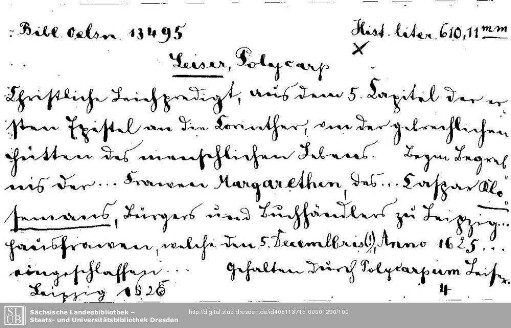 Bibl. Oelsn. 13495
Hist. liter. 610,11 mm
Leiser, Polycarp
Christliche Leichpredigt, aus dem 5. Capitel der er
sten Epistel an die Corinther, von der gebrechlichen
Hütten des menschlichen Lebens. Beym Begreb
nis der... Frawen Margarethen, des... Caspar Klo
semans, Bürgers und Buchhändlers zu Leipzig...
Hausfrawen, welche den 5. Decembris(!), Anno 1625...
eingeschlaffen... Gehalten durch Polycarpum Leiser.
Leipzig 1626
4
Sächsische Landesbibliothek –
Staats- und Universitätsbibliothek Dresden